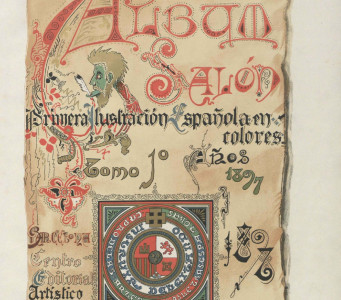 ALBUM
SALÓN
Primera Ilustración Española en
colores.
Tomo 1º Años
1897
Centro
Editorial
Artístico